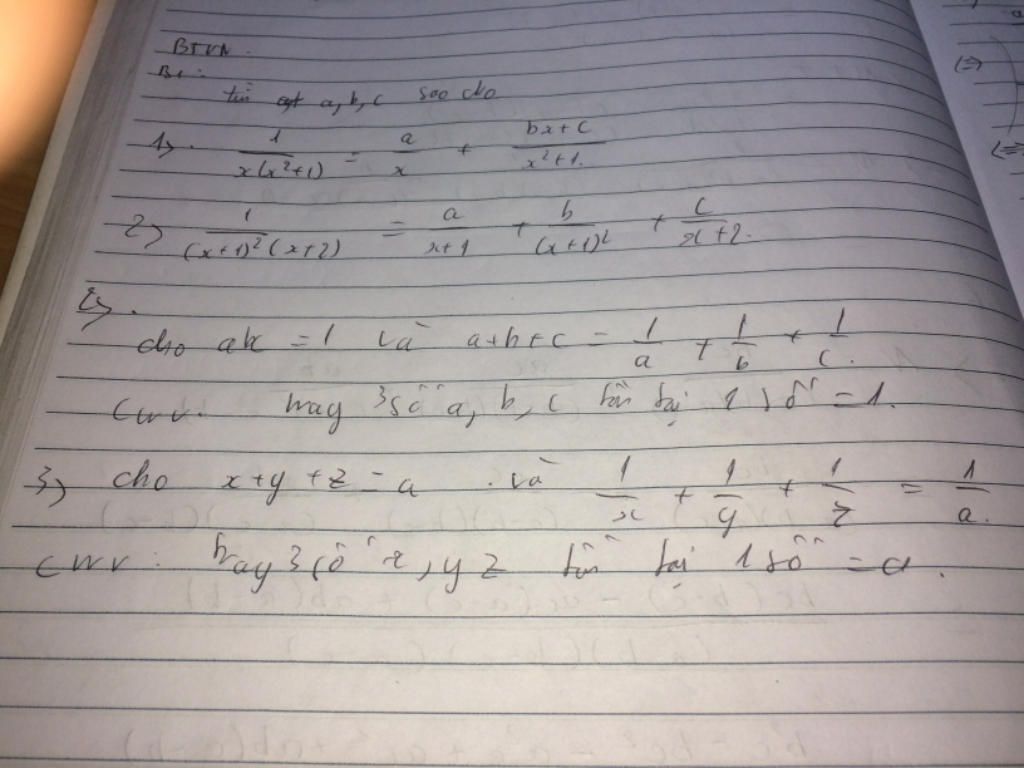 BTVN.
B1:
tìm a, b, c sao cho
1). 1/(x(x²+1)) = a/x + (bx+c)/(x²+1).
2) 1/((x+1)²(x+2)) = a/(x+1) + b/(x+1)² + c/(x+2).
2).
cho abc = 1 và a+b+c = 1/a + 1/b + 1/c.
CMR. trong 3 số a, b, c tồn tại 1 số = 1.
3) cho x+y+z = a và 1/x + 1/y + 1/z = 1/a.
CMR: trong 3 số x, y z tồn tại 1 số = a.